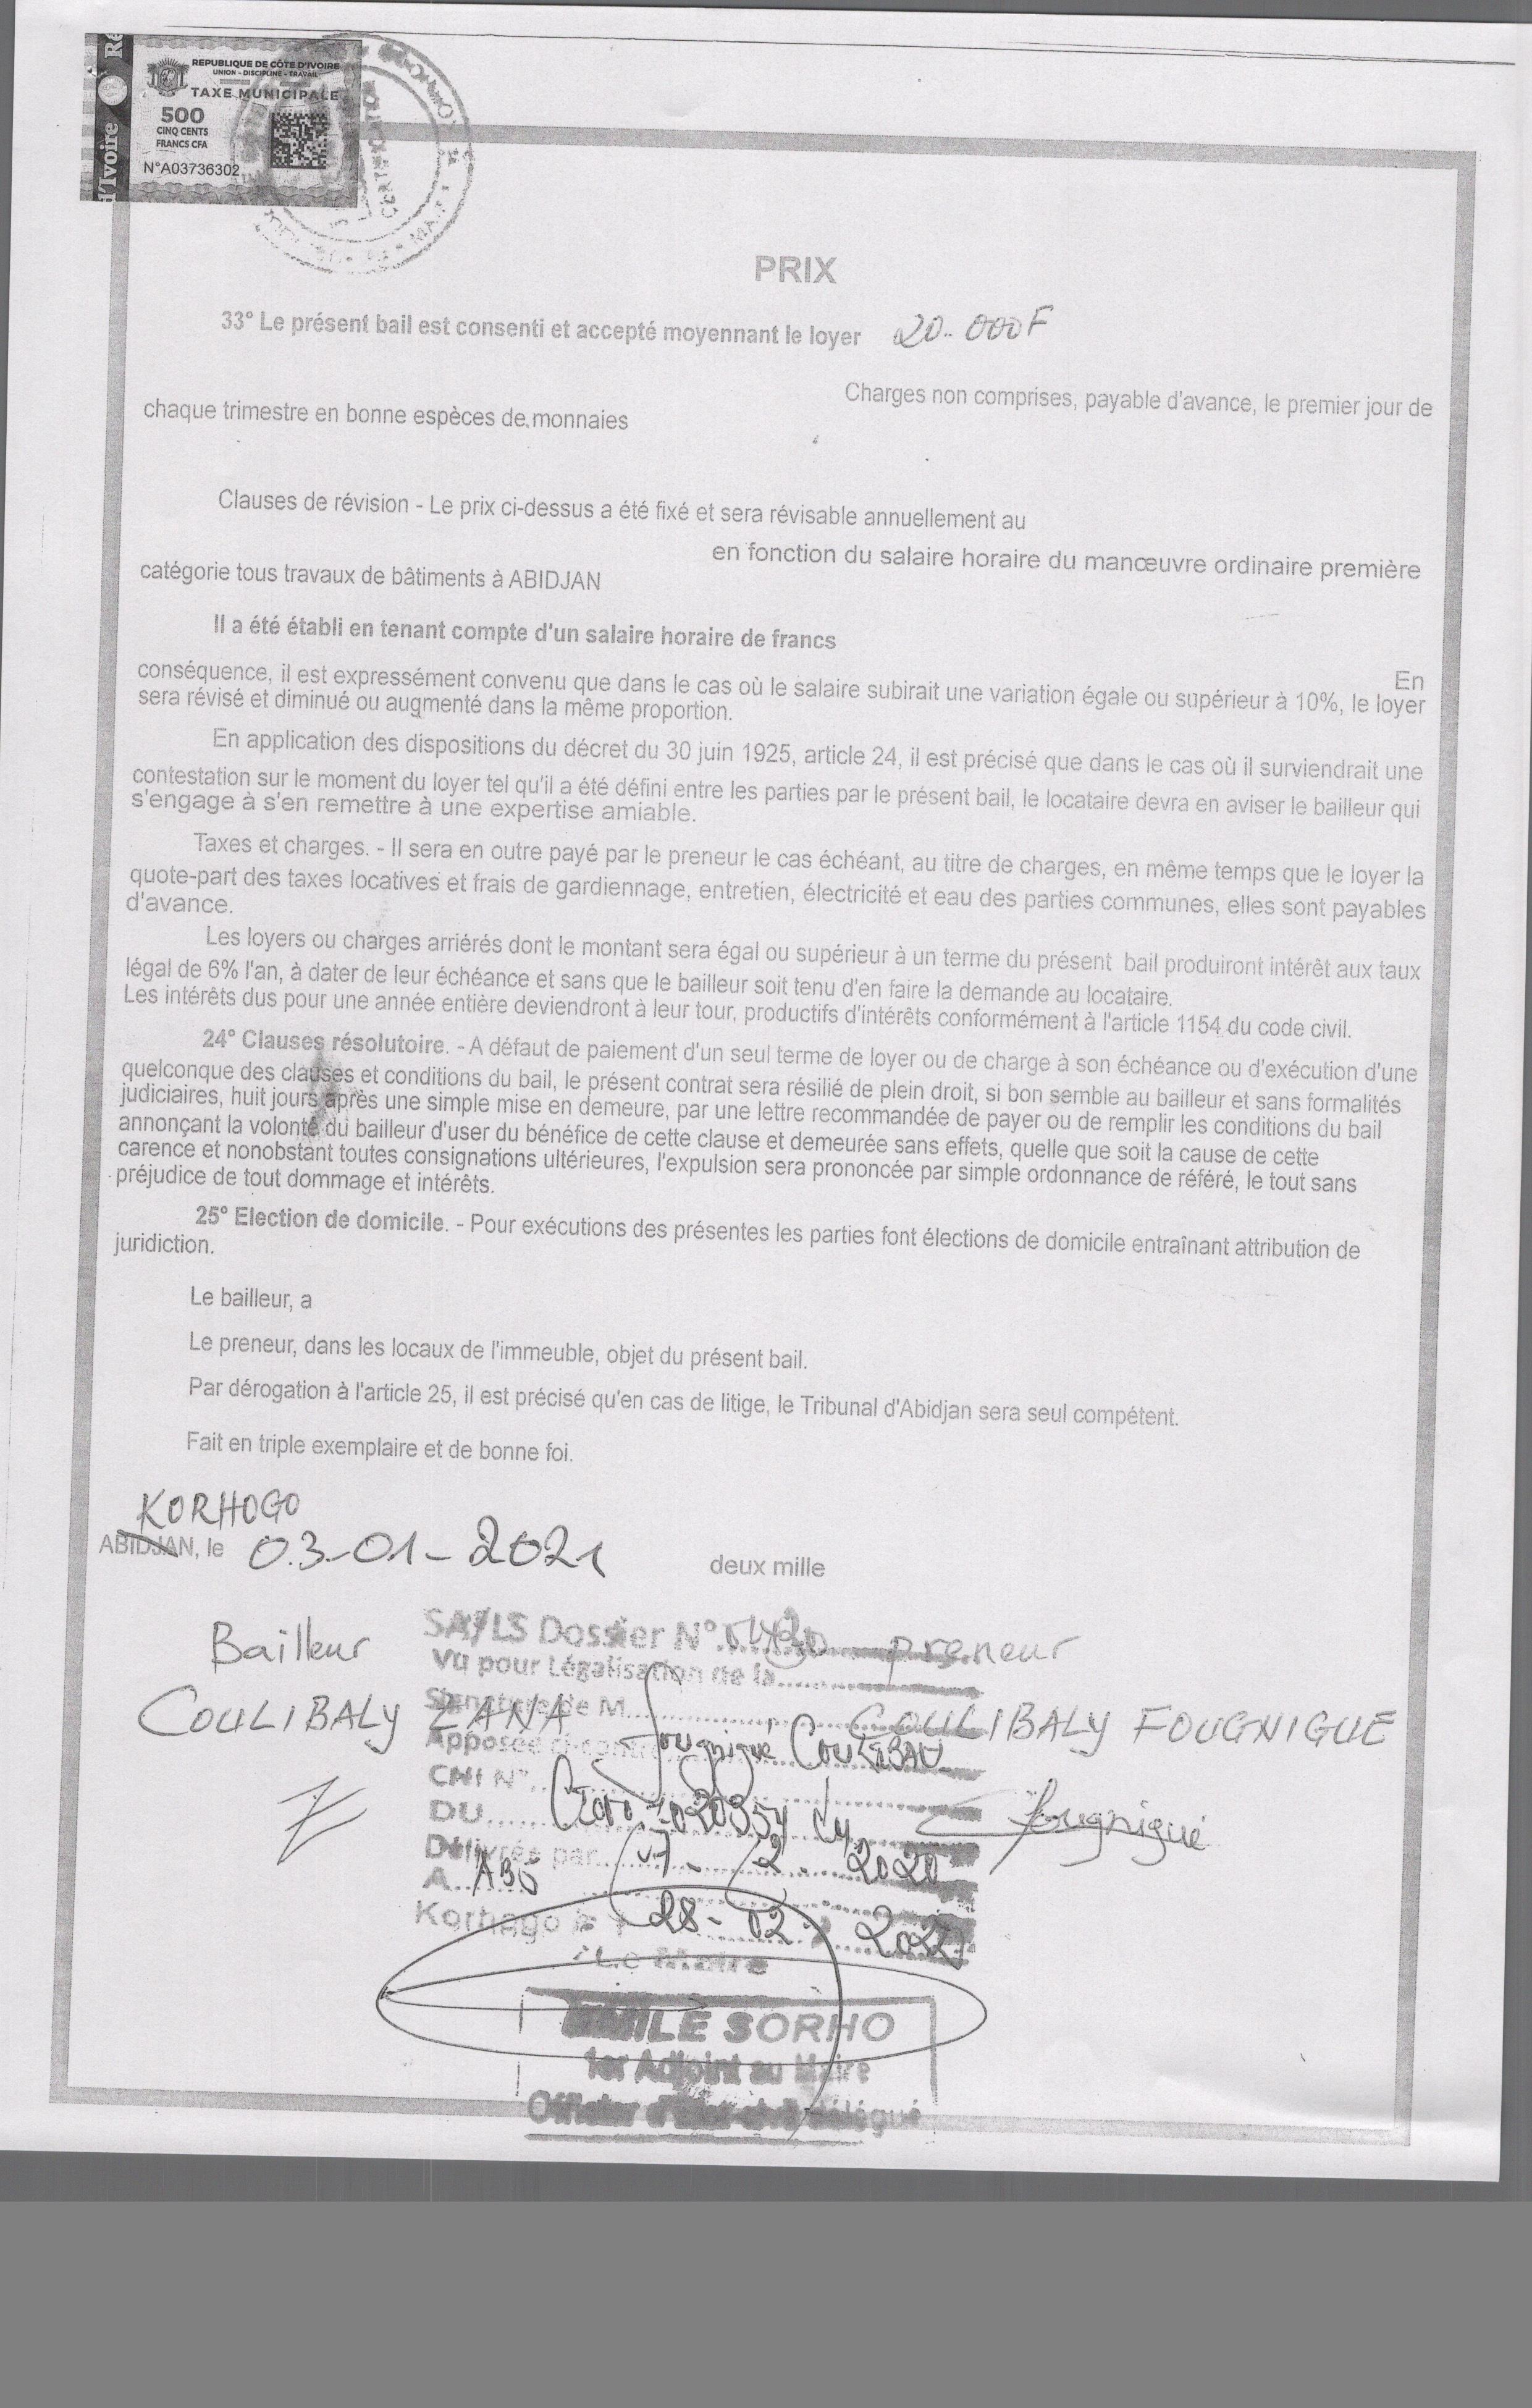 REPUBLIQUE DE CÔTE D'IVOIRE
UNION - DISCIPLINE - TRAVAIL
TAXE MUNICIPALE
500
CINQ CENTS
FRANCS CFA
N°A03736302
d'Ivoire
Ré
PRIX
33° Le présent bail est consenti et accepté moyennant le loyer 20.000F
Charges non comprises, payable d'avance, le premier jour de
chaque trimestre en bonne espèces de monnaies
Clauses de révision - Le prix ci-dessus a été fixé et sera révisable annuellement au
en fonction du salaire horaire du manœuvre ordinaire première
catégorie tous travaux de bâtiments à ABIDJAN
Il a été établi en tenant compte d'un salaire horaire de francs
En
conséquence, il est expressément convenu que dans le cas où le salaire subirait une variation égale ou supérieur à 10%, le loyer
sera révisé et diminué ou augmenté dans la même proportion.
En application des dispositions du décret du 30 juin 1925, article 24, il est précisé que dans le cas où il surviendrait une
contestation sur le moment du loyer tel qu'il a été défini entre les parties par le présent bail, le locataire devra en aviser le bailleur qui
s'engage à s'en remettre à une expertise amiable.
Taxes et charges. - Il sera en outre payé par le preneur le cas échéant, au titre de charges, en même temps que le loyer la
quote-part des taxes locatives et frais de gardiennage, entretien, électricité et eau des parties communes, elles sont payables
d'avance.
Les loyers ou charges arriérés dont le montant sera égal ou supérieur à un terme du présent bail produiront intérêt aux taux
légal de 6% l'an, à dater de leur échéance et sans que le bailleur soit tenu d'en faire la demande au locataire.
Les intérêts dus pour une année entière deviendront à leur tour, productifs d'intérêts conformément à l'article 1154 du code civil.
24° Clauses résolutoire. - A défaut de paiement d'un seul terme de loyer ou de charge à son échéance ou d'exécution d'une
quelconque des clauses et conditions du bail, le présent contrat sera résilié de plein droit, si bon semble au bailleur et sans formalités
judiciaires, huit jours après une simple mise en demeure, par une lettre recommandée de payer ou de remplir les conditions du bail
annonçant la volonté du bailleur d'user du bénéfice de cette clause et demeurée sans effets, quelle que soit la cause de cette
carence et nonobstant toutes consignations ultérieures, l'expulsion sera prononcée par simple ordonnance de référé, le tout sans
préjudice de tout dommage et intérêts.
25° Election de domicile. - Pour exécutions des présentes les parties font élections de domicile entraînant attribution de
juridiction.
Le bailleur, a
Le preneur, dans les locaux de l'immeuble, objet du présent bail.
Par dérogation à l'article 25, il est précisé qu'en cas de litige, le Tribunal d'Abidjan sera seul compétent.
Fait en triple exemplaire et de bonne foi.
KORHOGO
ABIDJAN, le 03-01-2021 deux mille
Bailleur SA/LS Dossier N° preneur
Vu pour Légalisation de la
Signature de M
COULIBALY ZANA COULIBALY FOUGNIGUE
Apposée Fougnigué COULIBALY
CNI N°
DU Fougnigué
Délivrée par 2020
A ABJ
Korhogo le 28-02
Le Maire
EMILE SORHO
1er Adjoint au Maire
Officier d'Etat civil délégué